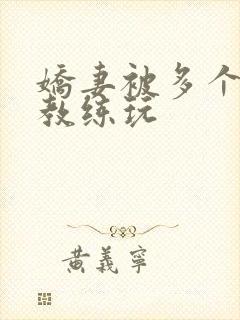 嬌妻被多个
教练玩
黄義寧